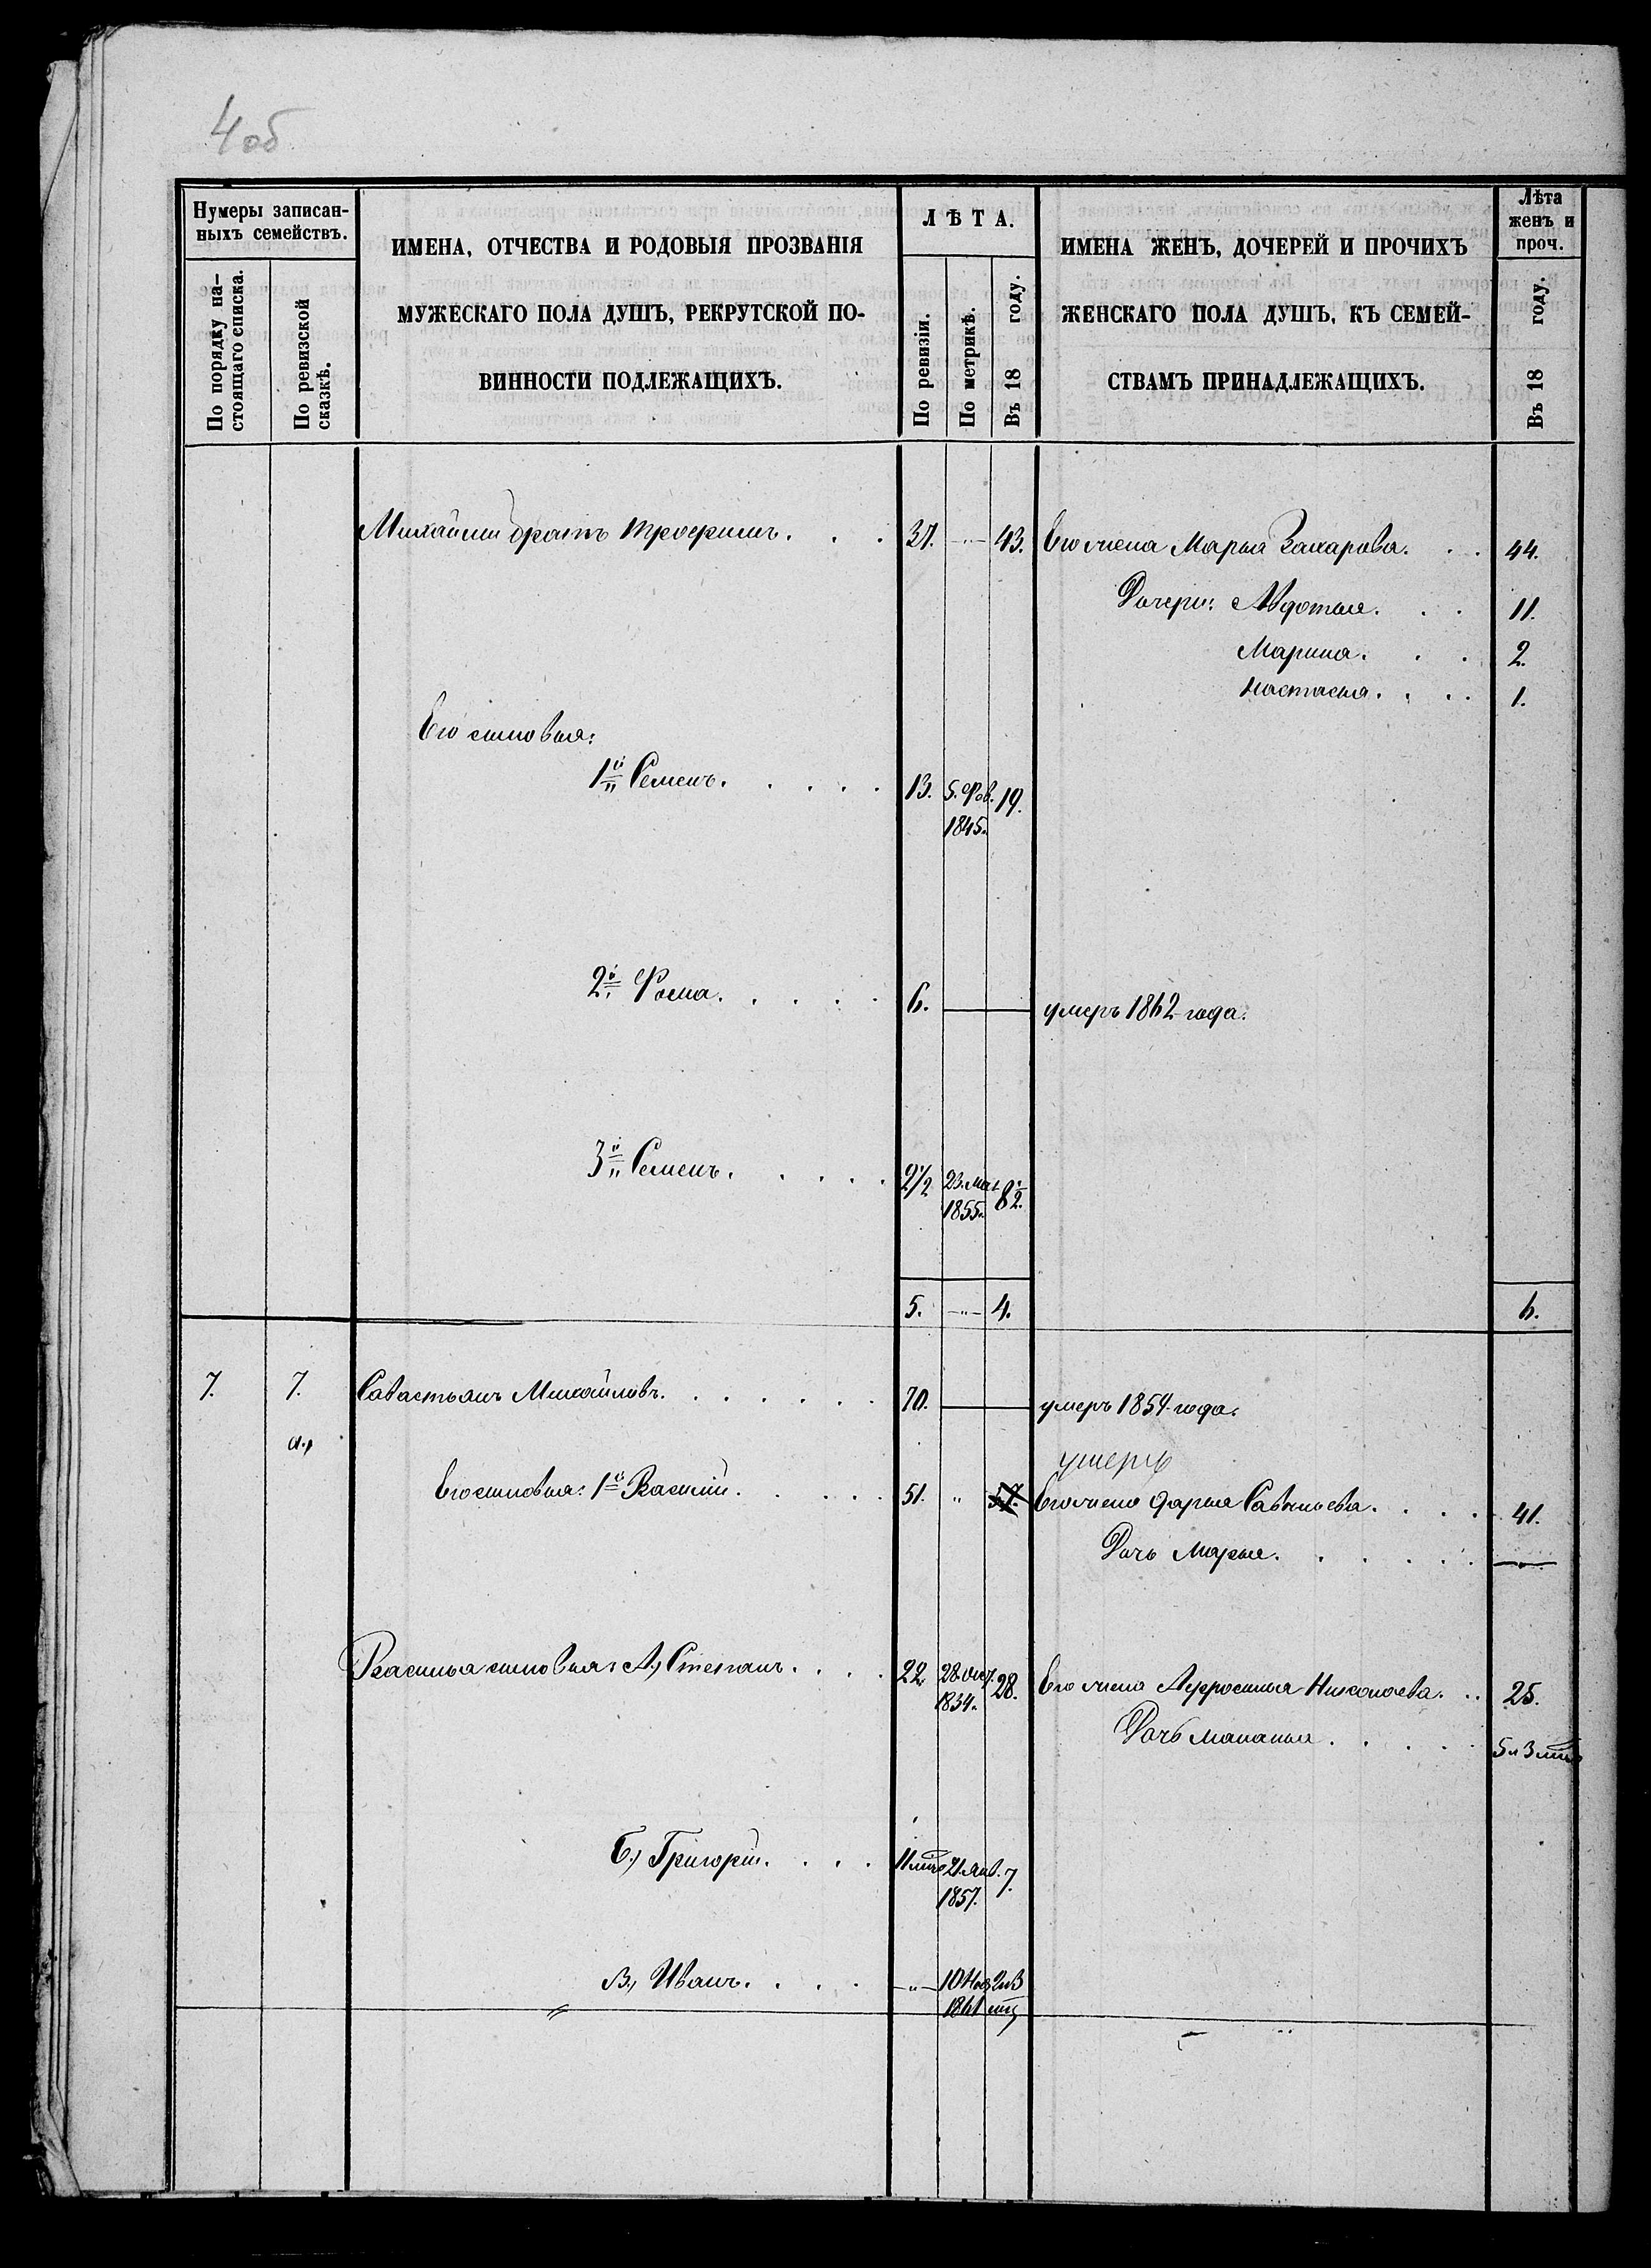 4об
Нумеры записан-
ныхъ семействъ.
По порядку на-
стоящаго списка.
По ревизской
сказкѣ.
ИМЕНА, ОТЧЕСТВА И РОДОВЫЯ ПРОЗВАНІЯ
МУЖЕСКАГО ПОЛА ДУШЪ, РЕКРУТСКОЙ ПО-
ВИННОСТИ ПОДЛЕЖАЩИХЪ.
ЛѢТА.
По ревизіи.
По метрикѣ.
Въ 18 году.
ИМЕНА ЖЕНЪ, ДОЧЕРЕЙ И ПРОЧИХЪ
ЖЕНСКАГО ПОЛА ДУШЪ, КЪ СЕМЕЙ-
СТВАМЪ ПРИНАДЛЕЖАЩИХЪ.
Лѣта
женъ и
проч.
Въ 18 году.
братъ Трофимъ. 37. —"— 43. Его жена Марья Захарова. 44.
Дочери: Авдотья. 11.
Марина. 2.
Настасья. 1.
Его сыновья:
1й Семенъ. 13. 5. Фев. 1845. 19.
2й Фома. 6. — умеръ 1862 года.
3й Семенъ. 2½ 23. 1855. 8½.
5. —"— 4. 6.
7. 7. Савастьянъ Михайловъ. 70. — умеръ 1854 года.
а.,
умеръ
Его сыновья: 1й Василий. 51. " 57. Его жена Дарья Савельева. 41.
Дочь Марья. —"—
Василья сыновья: А., Степанъ. 22. 28 Окт. 1834. 28. Его жена Афросинья Николаева. 25.
Дочь Маланья. 5 и 3 мца
Б., Григорій. 11 мце 21. Янв. 1857. 7.
В., Иванъ. —"— 10 Нояб 1861 2 и 3 мц